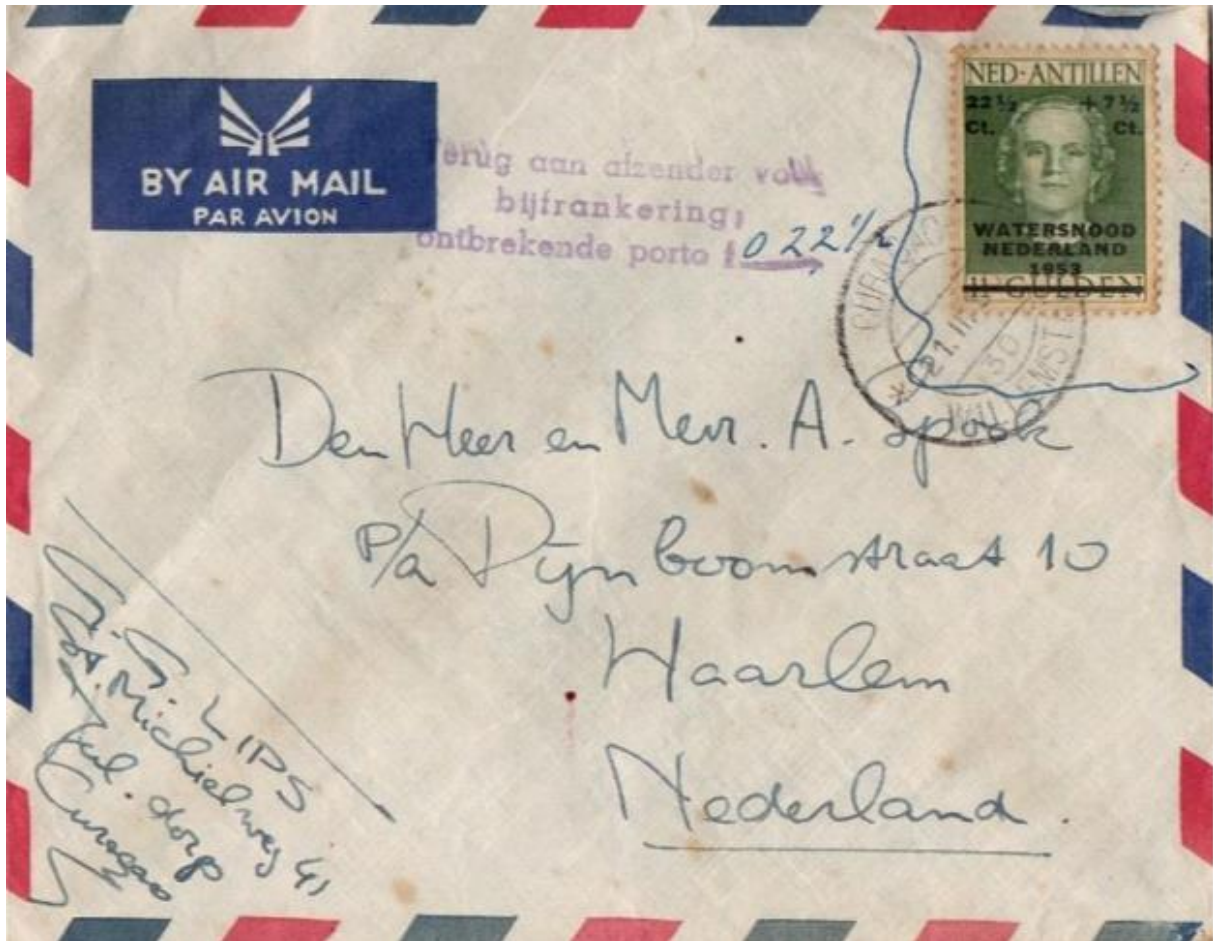 BY AIR MAIL
PAR AVION
Terug aan afzender voor
bijfrankering;
ontbrekende porto f 0 22 1/2
NED-ANTILLEN
22 ½ + 7 ½
Ct. Ct.
WATERSNOOD
NEDERLAND
1953
1½ GULDEN
21.III
30
Den Heer en Mevr. A. Spoek
P/a Pijnboomstraat 10
Haarlem
Nederland.
LIPS
St. Michielweg 41
Jul. dorp
Curaçao